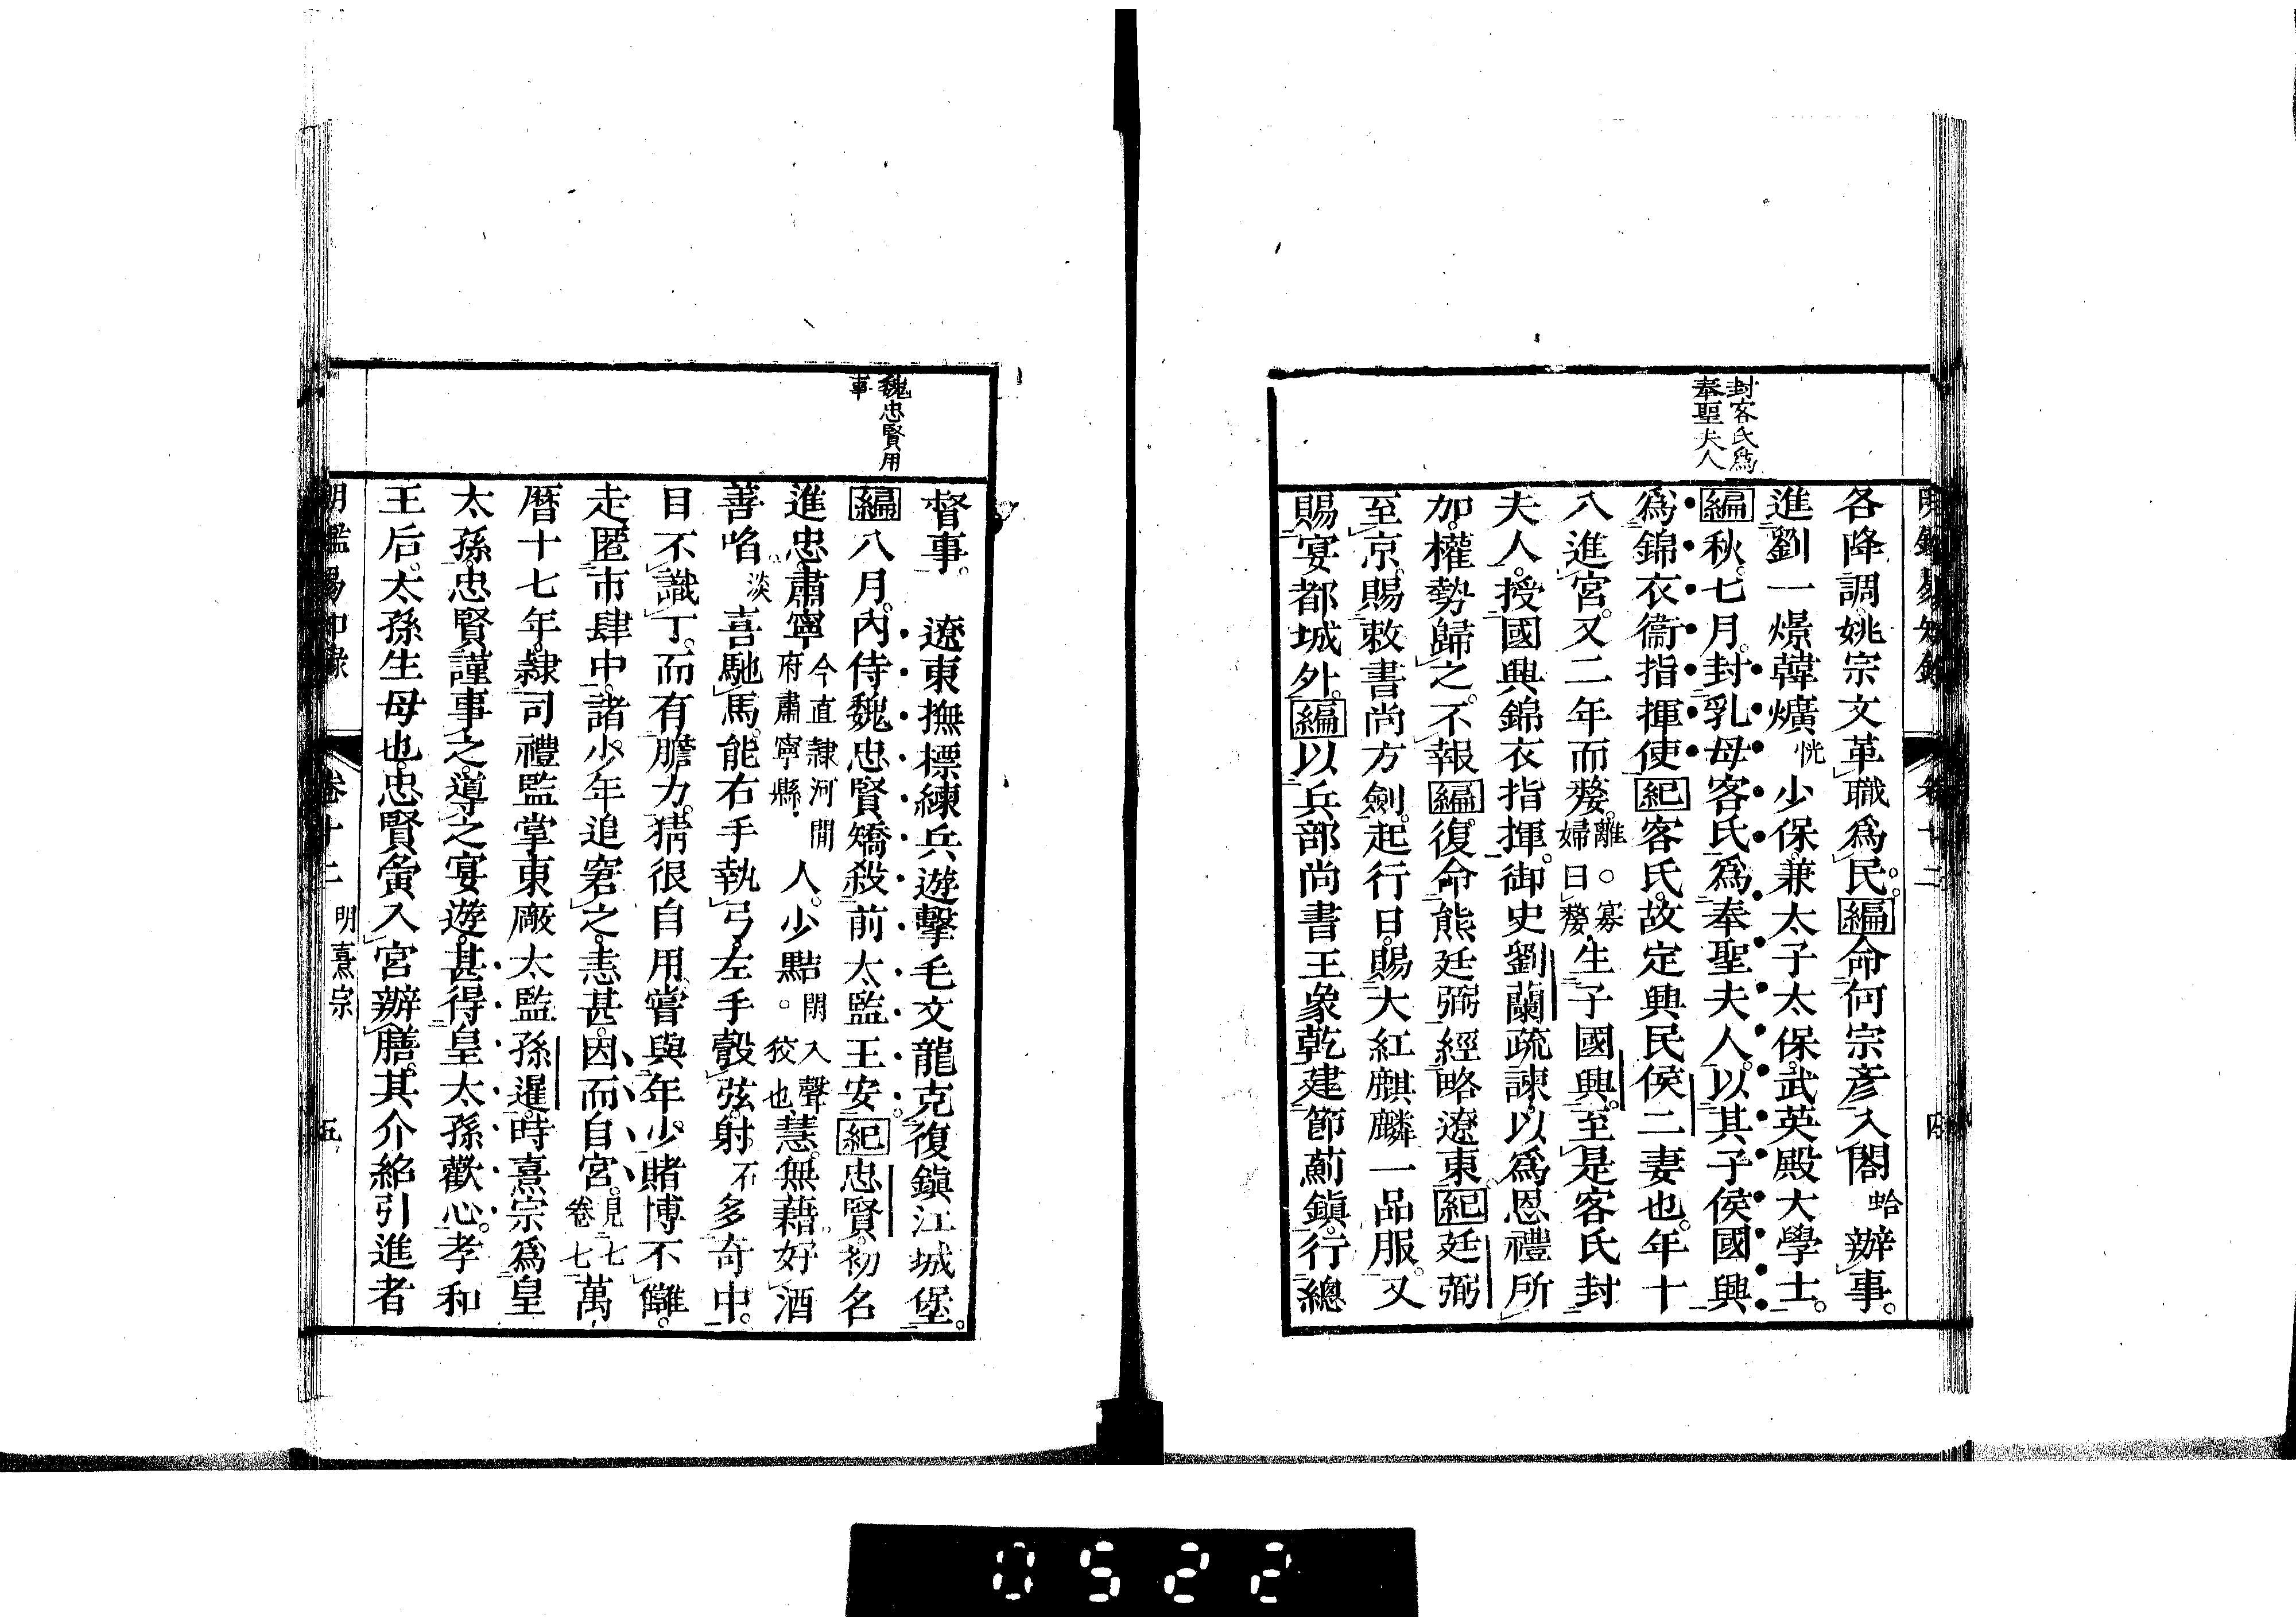 明鑑易知錄
卷十二
四
封客氏爲
奉聖夫人
各降調。姚宗文革職爲民。編命何宗彥入閣蛤辦事。
進劉一燝韓爌恍少保。兼太子太保。武英殿大學士。
編秋。七月。封乳母客氏爲奉聖夫人。以其子侯國興
爲錦衣衞指揮使紀客氏。故定興民侯二妻也。年十
八進宮。又二年而嫠。離。○寡婦曰嫠。生子國興。至是客氏封
夫人。授國興錦衣指揮。御史劉蘭疏諫。以爲恩禮所
加。權勢歸之。不報編復命熊廷弼經略遼東。紀廷弼
至京。賜敕書尚方劍。起行日。賜大紅麒麟一品服。又
賜宴都城外。編以兵部尚書王象乾建節薊鎭。行總
魏忠賢用
事
督事。　遼東撫標練兵遊擊毛文龍克復鎭江城堡。
編八月。內侍魏忠賢矯殺前太監王安紀忠賢。初名
進忠。肅寧今直隸河閒府肅寧縣。人。少黠。閑入聲。狡也。慧。無藉。好酒
善啗。淡喜馳馬。能右手執弓。左手彀弦。射。石多奇中。
目不識丁。而有膽力。猜很自用。嘗與年少賭博不讎。
走匿市肆中。諸少年追窘之。恚甚。因而自宮。見七卷七萬
曆十七年。隸司禮監掌東廠太監孫暹。時熹宗爲皇
太孫。忠賢謹事之。導之宴遊。甚得皇太孫歡心。孝和
王后。太孫生母也。忠賢夤入宮辦膳。其介紹引進者
明鑑易知錄
卷十二
明熹宗
五
0522